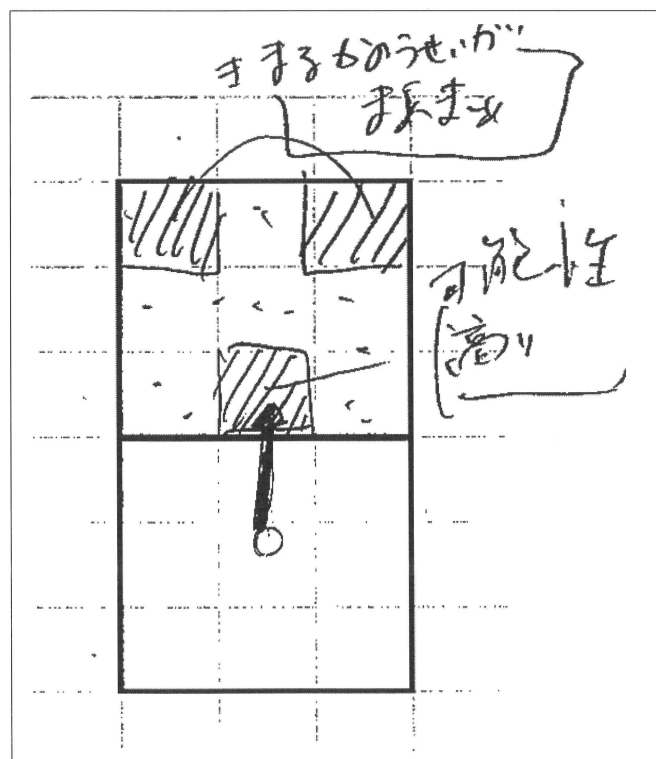 きまるかのうせいが
まあまあ
可能性
高い